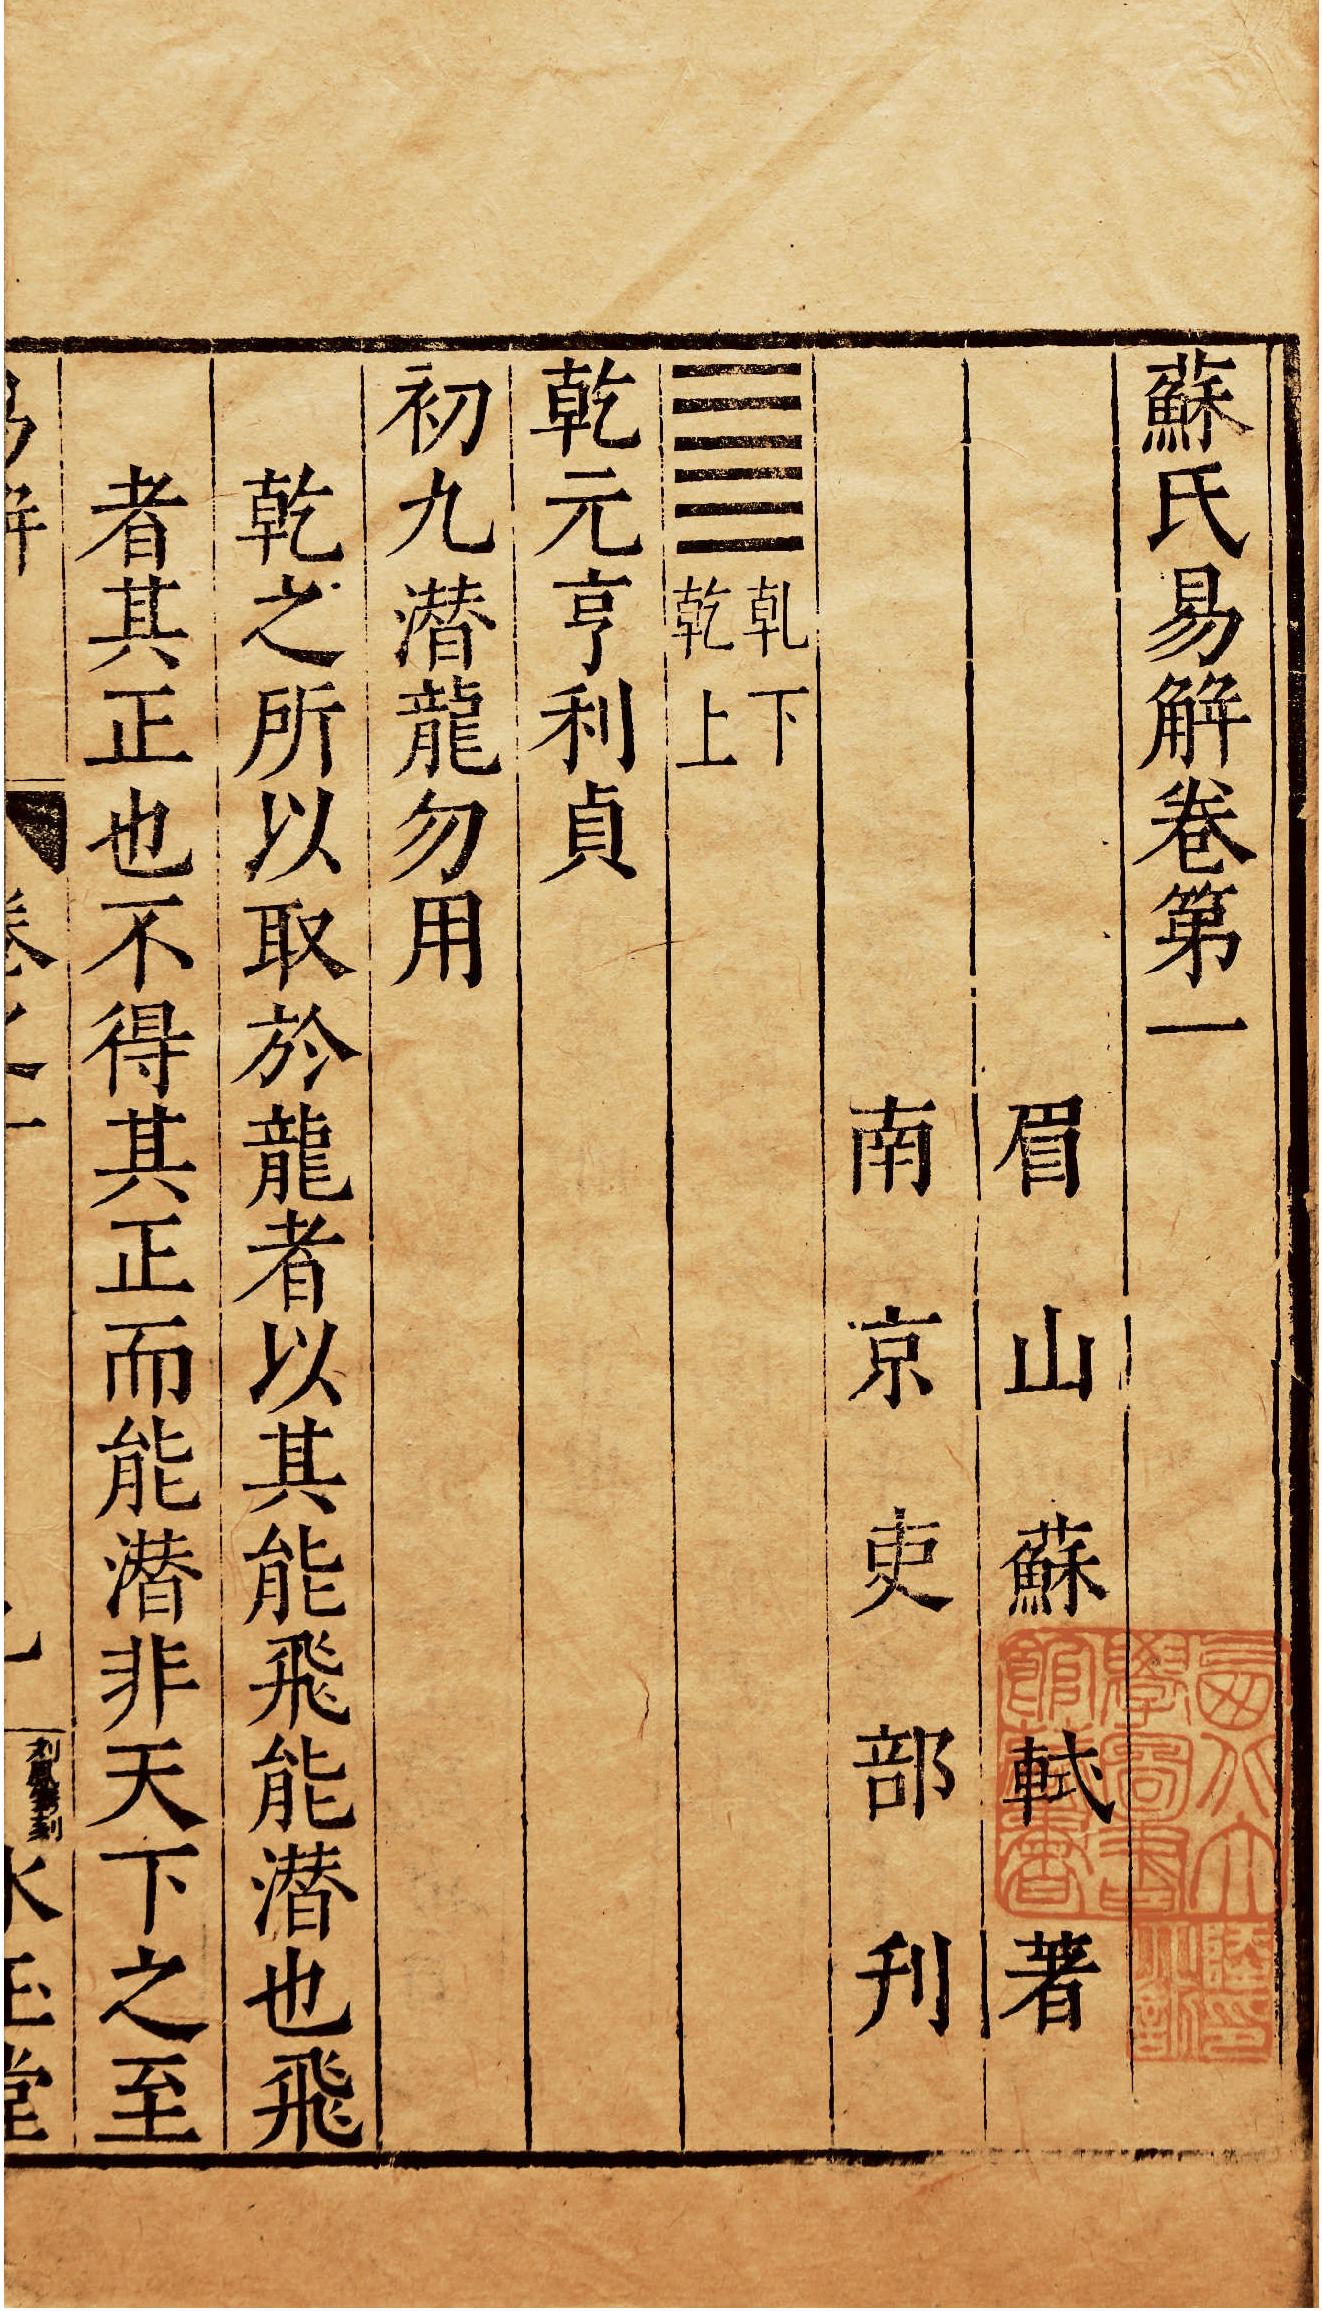 蘇氏易解卷第一
眉山蘇軾著
南京吏部刋
䷀乾下
乾上
乾元亨利貞
初九潜龍勿用
乾之所以取於龍者以其能飛能潜也飛
者其正也不得其正而能潜非天下之至
易解 卷之一 冰玉堂